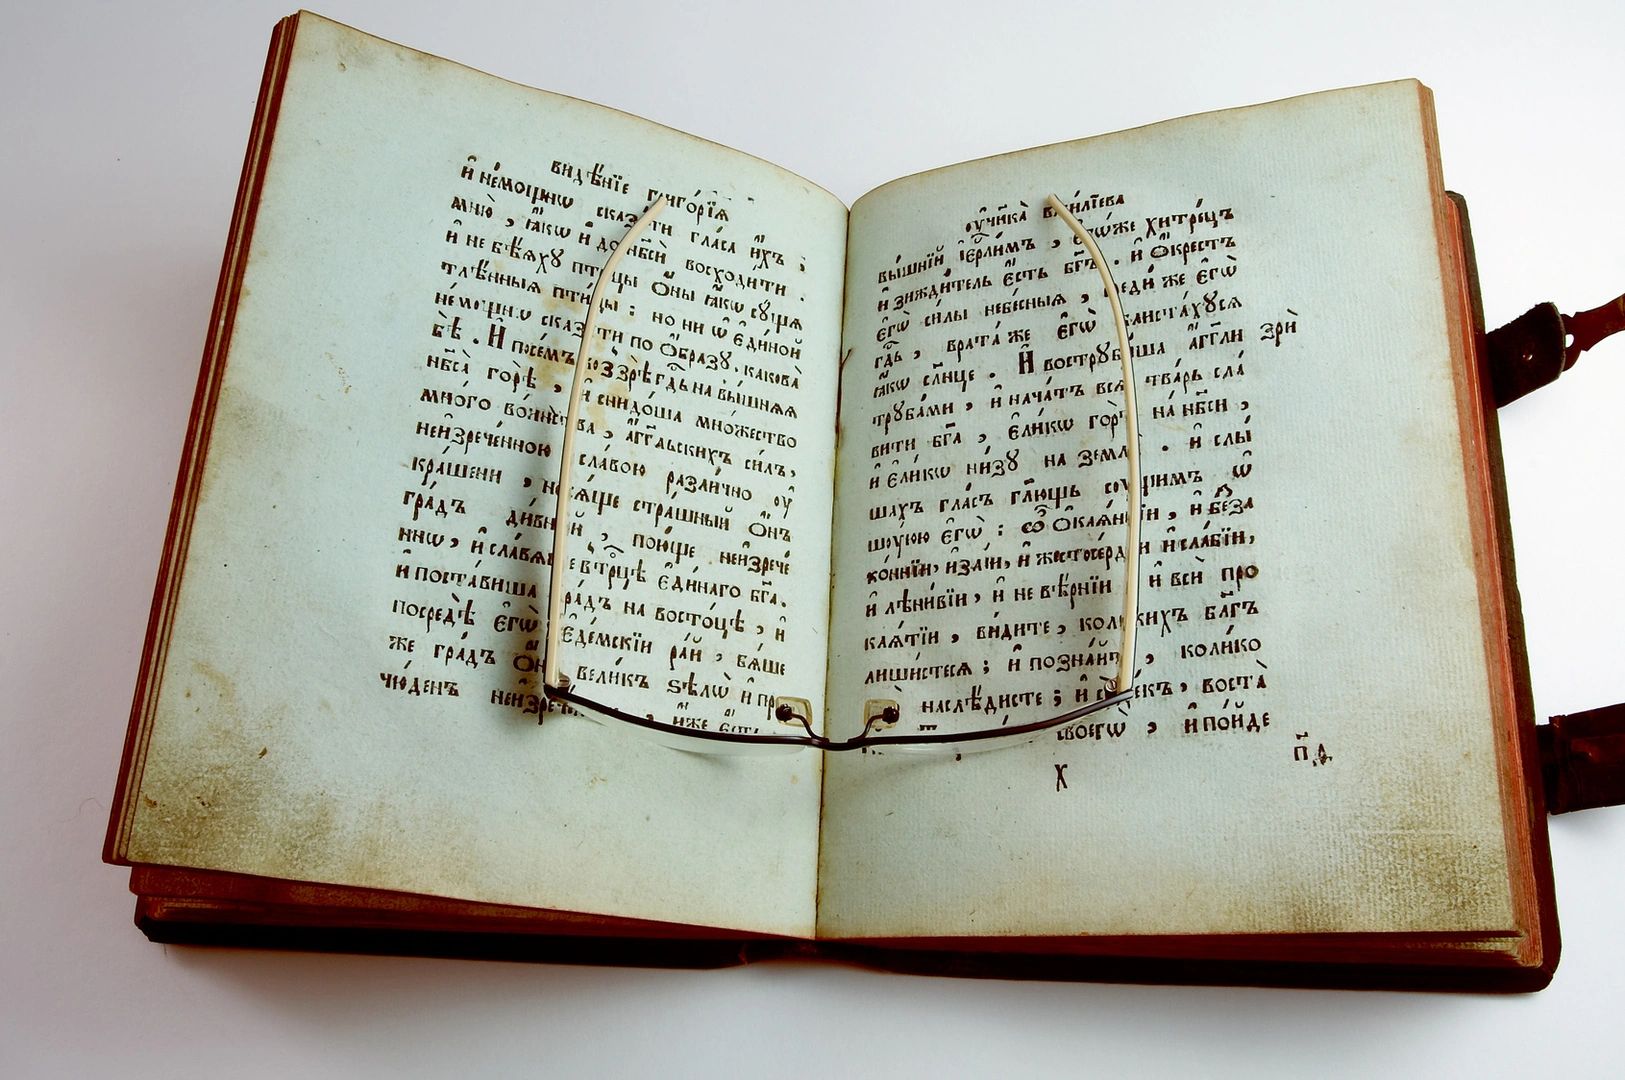 видѣ́нїе григо́рїѧ
и҆ не́мощнѡ сказа́ти гла́са и҆́хъ ;
мню̀ , ꙗ҆́кѡ и҆ до нб҃сѝ восходи́ти .
и҆ не бѣѧ́хꙋ пти́цы ѻ҆́ны ꙗ҆́кѡ сꙋ́щѧ
тлѣ́нныѧ пти́цы : но ни ѿ є҆ди́ной
не́мощнѡ сказа́ти по ѻ҆́бразꙋ . какова̀
бѣ̀ . И҆ посе́мъ воззрѣ̀ гд҃ь на вы́шнѧѧ
нб҃са̀ горѣ̀ , и҆ снидо́ша мно́жество
мно́го во́инства , а҆́гг҃льскихъ си́лъ ,
неи҆зрече́нною сла́вою рази́чно оу҆
кра́шени , носѧ́ще стра́шный ѻ҆́нъ
гра́дъ ди́вный , пою́ще неи҆зрече́
ннѡ , и҆ сла́вѧще в трⷪ҇цѣ є҆ди́наго бг҃а .
и҆ поста́виша гра́дъ на восто́цѣ , и҆
посредѣ̀ є҆гѡ̀ є҆де́мскїи ра́й , бѧ́ше
же гра́дъ ѻ҆́нъ вели́къ ѕѣлѡ̀ и҆ пр
чю́денъ неи҆зрече́ , и҆́же є҆́сть
оу҆чн҃ка̀ васи́лїева
вы́шнїй і҆ер҃ли́мъ , є҆мꙋ́же хитре́цъ
и҆ зижди́тель є҆́сть бг҃ъ . и҆ ѻ҆́крестъ
є҆гѡ̀ си́лы небе́сныѧ , среди́ же є҆гѡ̀
гд҃ь , врата́ же є҆гѡ̀ блиста́хꙋсѧ
ꙗ҆́кѡ сл҃нце . И҆ вострꙋби́ша а҆́гг҃ли зрѝ
трꙋба́ми , и҆ нача́тъ всѧ̀ тва́рь сла́
вити бг҃а , є҆ли́кѡ горѣ̀ на нб҃сѝ ,
и҆ є҆ли́кѡ ни́зꙋ на землѝ . и҆ слы́
шахъ гла́съ гл҃ющь соу́щимъ ѿ
шꙋ́юю є҆гѡ̀ : ѽ ѻ҆каѧ́ннїи , и҆ беза
ко́ннїи , и҆ зл҃і́и , и҆ жестосе́рдїи и҆ сла́бїи ,
и҆ лѣни́вїи , и҆ не вѣ́рнїи и҆ всѝ про
каѧ́тїи , ви́дите , коли́кихъ бл҃гъ
лиши́стесѧ ; и҆ позна́йте , коли́ко
наслѣ́дисте ; и҆ воста̀
своегѡ̀ , и҆ по́йде
п҃д
х